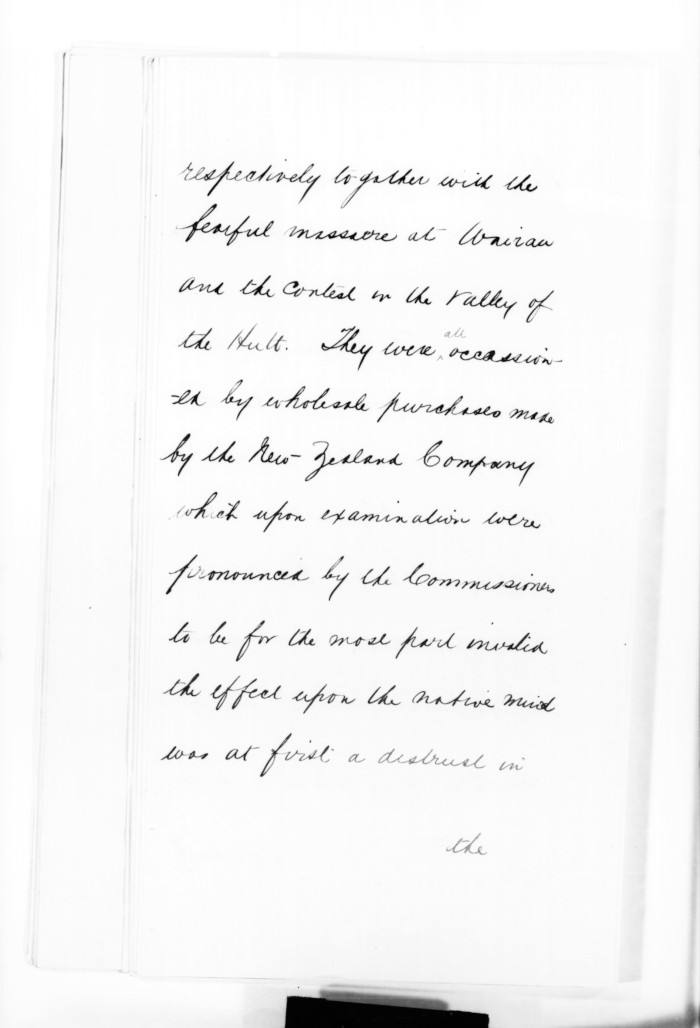 respectively together with the
fearful massacre at Wairau
and the contest in the valley of
the Hutt. They were all occassion-
-ed by wholesale purchases made
by the New Zealand Company
which upon examination were
pronounced by the Commissioners
to be for the most part invalid
the effect upon the native mind
was at first a distrust in
the